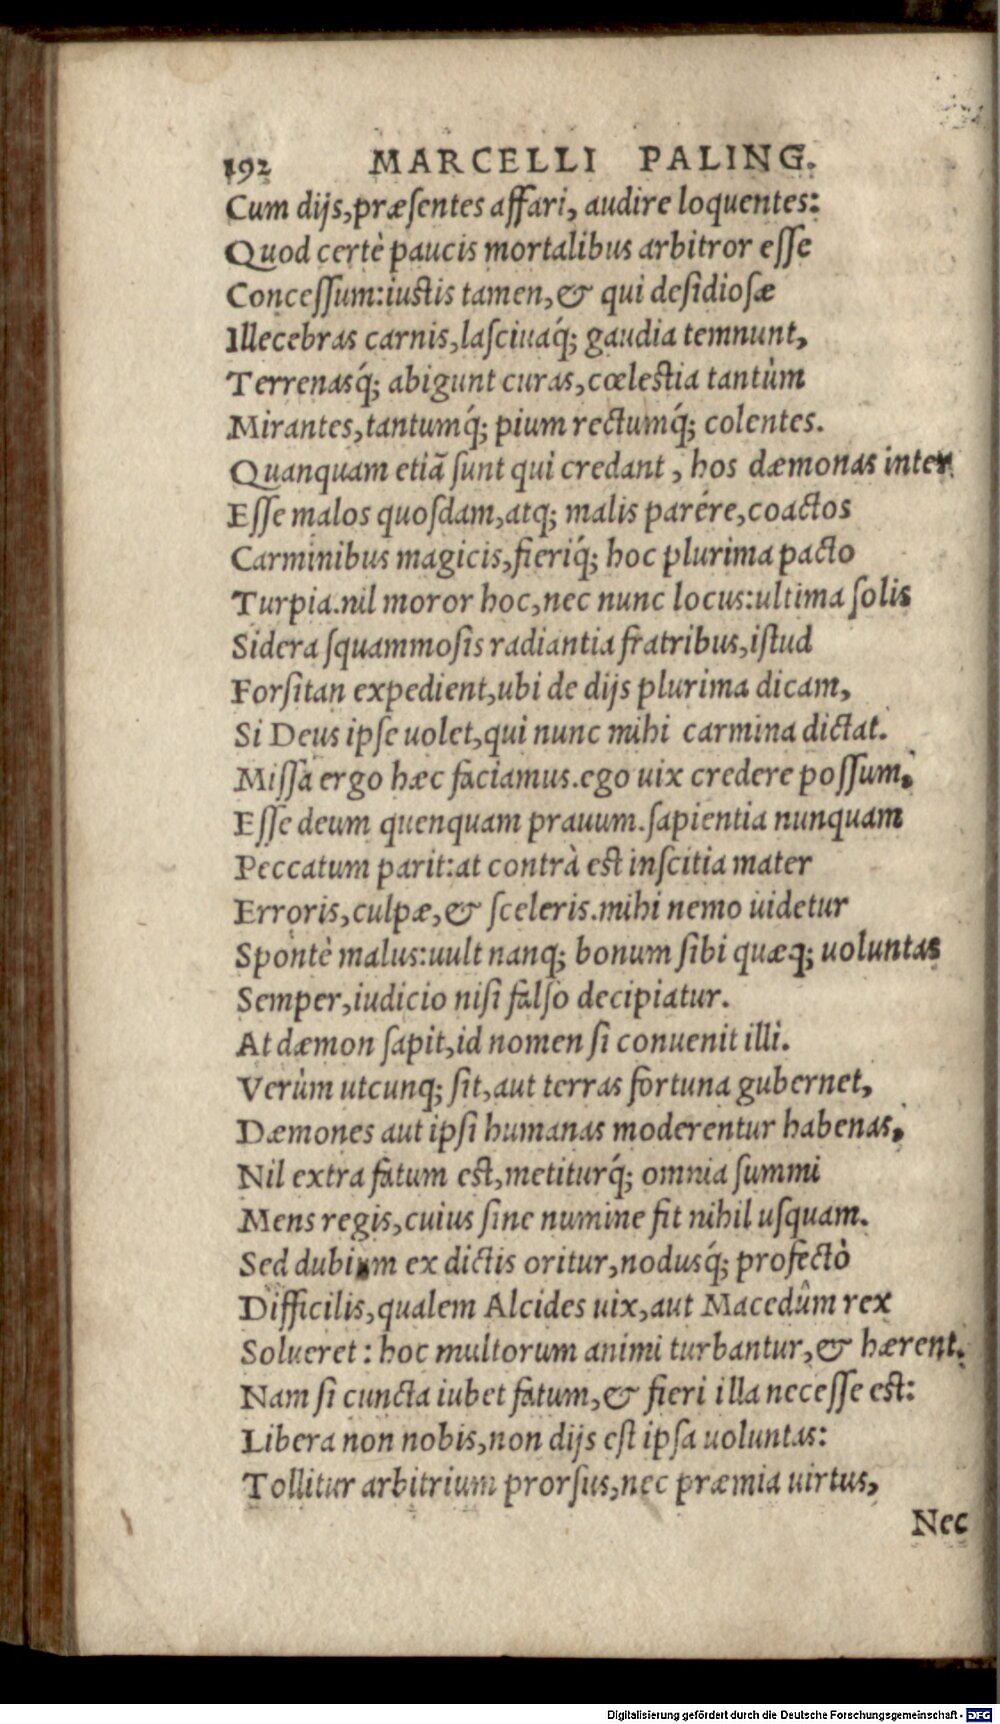 192 MARCELLI PALING.
Cum dijs,præsentes affari, audire loquentes:
Quod certè paucis mortalibus arbitror esse
Concessum:iustis tamen,& qui desidiosæ
Illecebras carnis,lasciuaq́; gaudia temnunt,
Terrenasq́; abigunt curas,cœlestia tantùm
Mirantes,tantumq́; pium rectumq́; colentes.
Quanquam etiã sunt qui credant , hos dæmonas inter
Esse malos quosdam,atq; malis parére,coactos
Carminibus magicis,fieriq́; hoc plurima pacto
Turpia.nil moror hoc,nec nunc locus:ultima solis
Sidera squammosis radiantia fratribus,istud
Forsitan expedient,ubi de dijs plurima dicam,
Si Deus ipse uolet,qui nunc mihi carmina dictat.
Missa ergo hæc faciamus.ego uix credere possum,
Esse deum quenquam prauum.sapientia nunquam
Peccatum parit:at contrà est inscitia mater
Erroris,culpæ,& sceleris.mihi nemo uidetur
Spontè malus:uult nanq; bonum sibi quæq; uoluntas
Semper,iudicio nisi falso decipiatur.
At dæmon sapit,id nomen si conuenit illi.
Verùm utcunq; sit,aut terras fortuna gubernet,
Dæmones aut ipsi humanas moderentur habenas,
Nil extra fatum est,metiturq́; omnia summi
Mens regis,cuius sine numine fit nihil usquam.
Sed dubium ex dictis oritur,nodusq́; profectò
Difficilis,qualem Alcides uix,aut Macedûm rex
Solueret : hoc multorum animi turbantur,& hærent.
Nam si cuncta iubet fatum,& fieri illa necesse est:
Libera non nobis,non dijs est ipsa uoluntas:
Tollitur arbitrium prorsus,nec præmia uirtus,
Nec
Digitalisierung gefördert durch die Deutsche Forschungsgemeinschaft - DFG